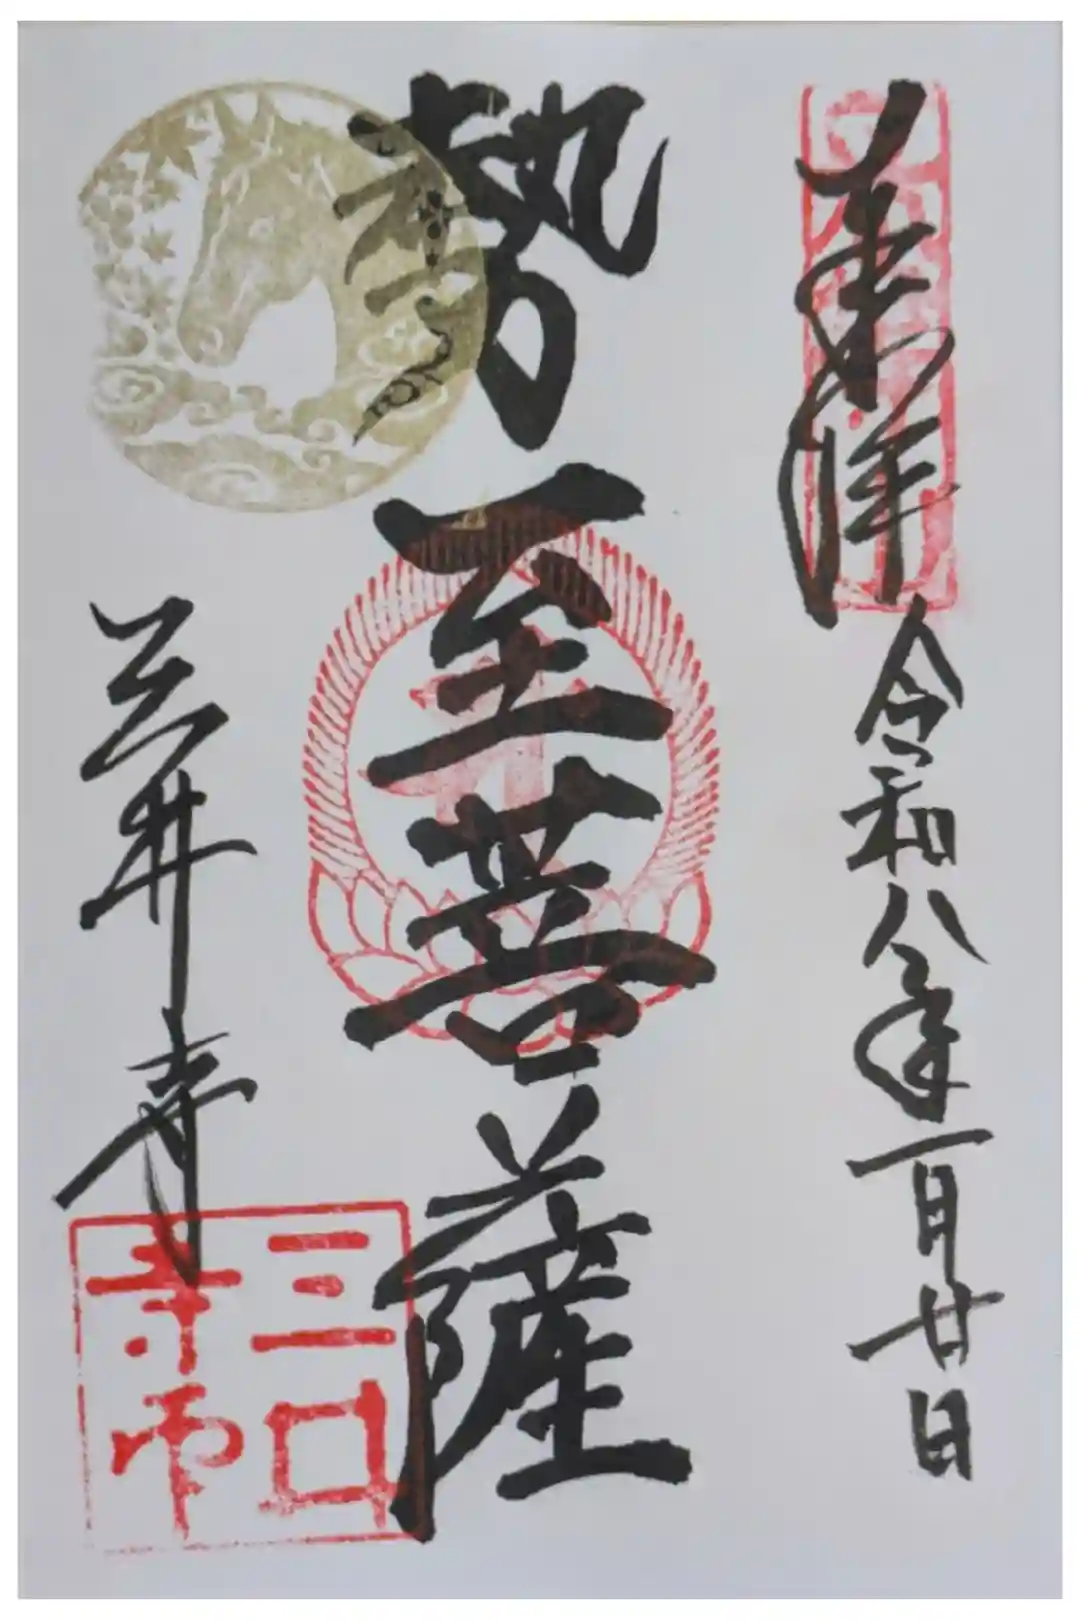 奉拝
令和八年一月廿日
勢至菩薩
三井寺
三井
寺印